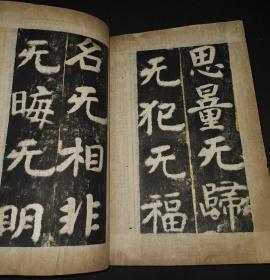 思量无歸
无犯无福
名无相非
无晦无明